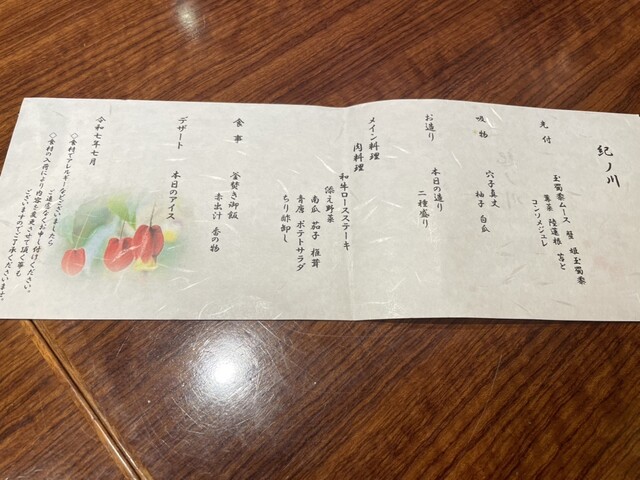 紀ノ川
先付
玉蜀黍ムース 蟹 姫玉蜀黍
蓴菜 陸蓮根 莟と
コンソメジュレ
吸物
穴子真丈
柚子 白瓜
お造り
本日の造り
二種盛り
メイン料理
肉料理
和牛ロースステーキ
添え野菜
南瓜 茄子 椎茸
青唐 ポテトサラダ
ちり酢卸し
食事
釜焚き御飯
赤出汁 香の物
デザート
本日のアイス
令和七年七月
◇食材でアレルギーなどございましたら
ご遠慮なくお申し付けください。
◇食材の入荷により内容を変更させて頂く事も
ございますのでご了承くださいませ。